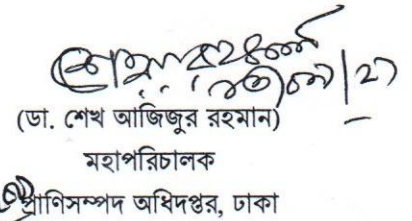 (ডা. শেখ আজিজুর রহমান)
মহাপরিচালক
প্রাণিসম্পদ অধিদপ্তর, ঢাকা